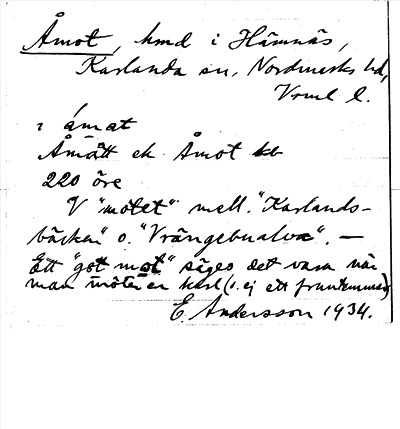 Åmot, hmd i Hämnäs,
Karlanda sn, Nordmarks hd,
Vrml l.
ı ámat
Åmått ek Åmot kb
220 öre
V "mötet" mell. "Karlands-
bäcken" o. "Vrängebualva". —
Ett "got mot" säges det vara när
man möter en karl (o. ej ett fruntimmer)
E. Andersson 1934.